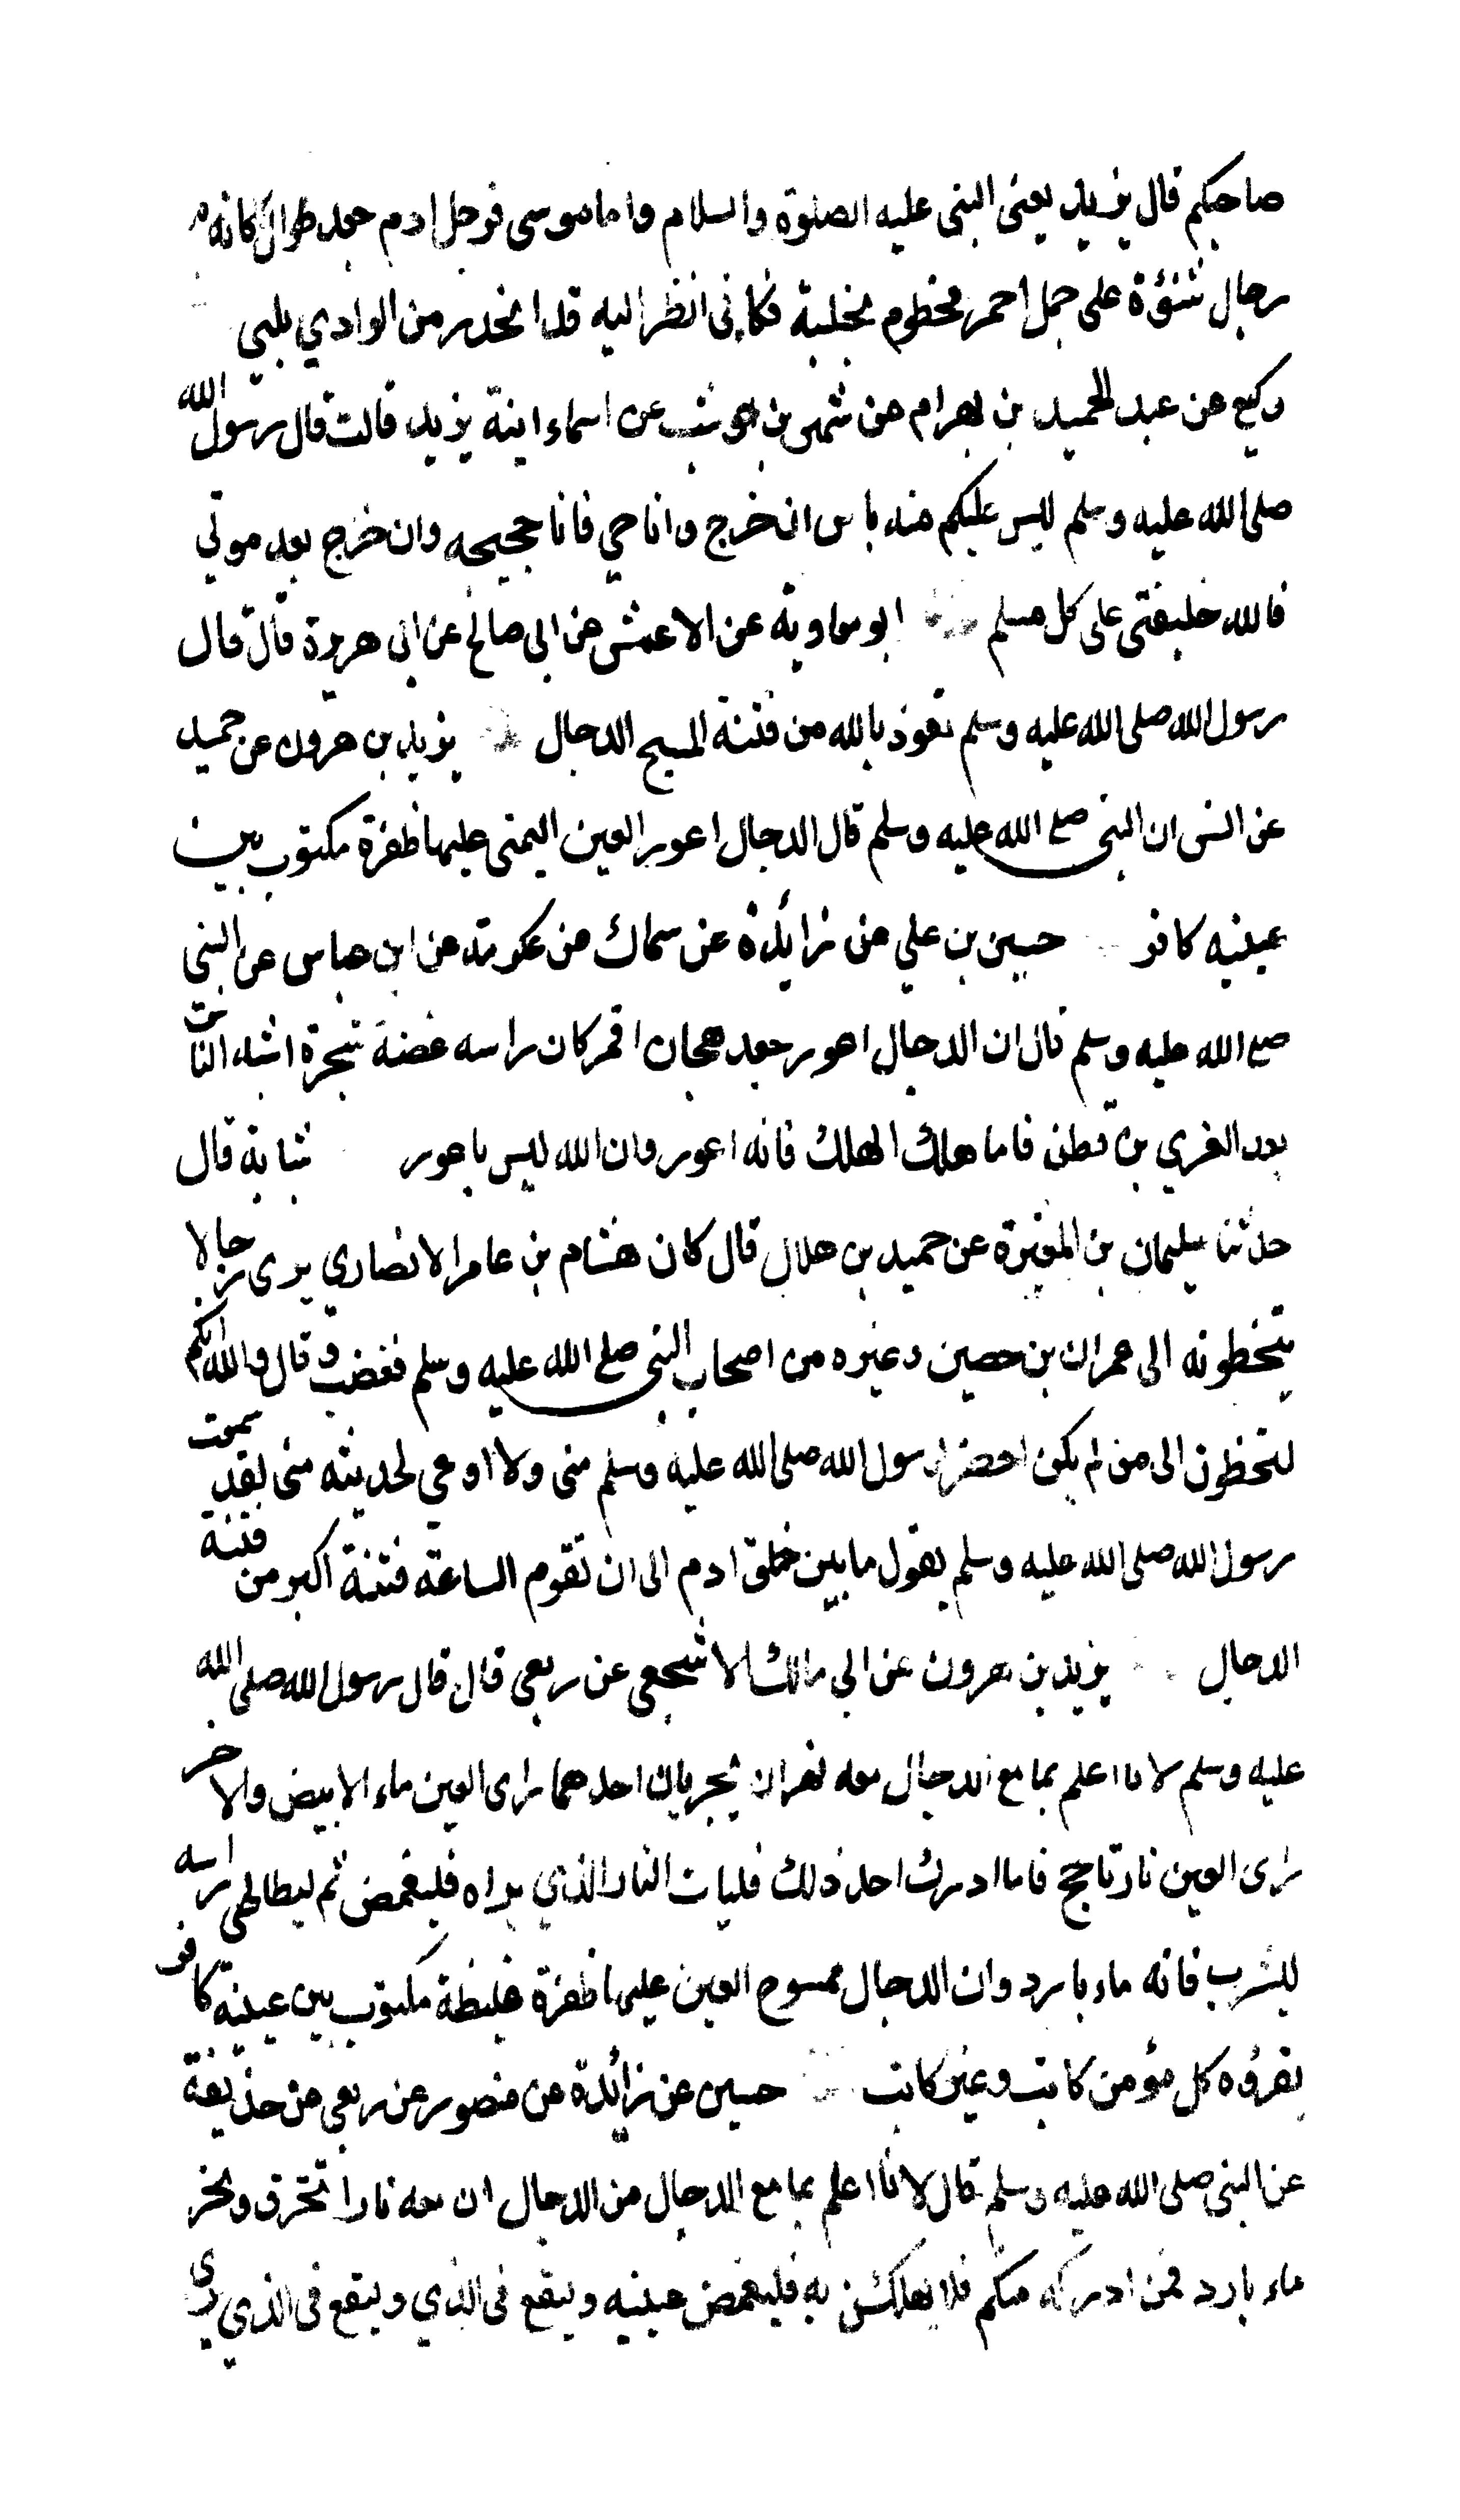 صاحبكم قال يزيد يعني النبي عليه الصلوة والسلام واما موسى فرجل ادم جعد طوال كانه من
رجال شنؤة على جمل احمر مخطوم بخلبة فكاني انظر اليه قد انحدر من الوادي يلبي
وكيع عن عبد الحميد بن بهرام عن شهر بن حوشب عن اسماء ابنة يزيد قالت قال رسول الله
صلى الله عليه وسلم ليس عليكم منه باس ان خرج وانا حي فانا حجيجه وان خرج بعد موتي
فالله خليفتي على كل مسلم ابو معاوية عن الاعمش عن ابي صالح عن ابي هريرة قال قال
رسول الله صلى الله عليه وسلم تعوذ بالله من فتنة المسيح الدجال يزيد بن هرون عن حميد
عن انس ان النبي صلى الله عليه وسلم قال الدجال اعور العين اليمنى عليها ظفرة مكتوب بين
عينيه كافر حسين بن علي عن زايدة عن سماك عن عكرمة عن ابن عباس عن النبي
صلى الله عليه وسلم قال ان الدجال اعور جعد هجان اقمر كان راسه غصنة شجرة اشبه الناس
بعبد العزي بن قطن فاما هلك الهلك فانه اعور وان الله ليس باعور شبابة قال
حدثنا سليمان بن المغيرة عن حميد بن هلال قال كان هشام بن عامر الانصاري يرى رجالا
يتخطونه الى عمران بن حصين وغيره من اصحاب النبي صلى الله عليه وسلم فغضب وقال والله انكم
لتخطون الى من لم يكن احضر لرسول الله صلى الله عليه وسلم مني ولا اوعي لحديثه مني لقد سمعت
رسول الله صلى الله عليه وسلم يقول ما بين خلق ادم الى ان تقوم الساعة فتنة اكبر من فتنة
الدجال يزيد بن هرون عن ابي مالك الاشجعي عن ربعي قال قال رسول الله صلى الله
عليه وسلم لانا اعلم بما مع الدجال معه نهران يجريان احدهما راى العين ماء الابيض والاخر
راى العين نار تاجج فاما ادرك احد ذلك فليات النار الذي يراه فليغمض ثم ليطاطي راسه
ليشرب فانه ماء بارد وان الدجال ممسوح العين عليها ظفرة غليظة مكتوب بين عينيه كافر
يقرؤه كل مؤمن كاتب وغير كاتب حسين عن زائدة عن منصور عن ربعي عن حذيفة
عن النبي صلى الله عليه وسلم قال لانا اعلم بما مع الدجال من الدجال ان معه نارا تحرق ونحر
ماء بارد فمن ادركه منكم فلا يهلكن به فليغمض عينيه وليقع في الذي وليقع في الذي يرى